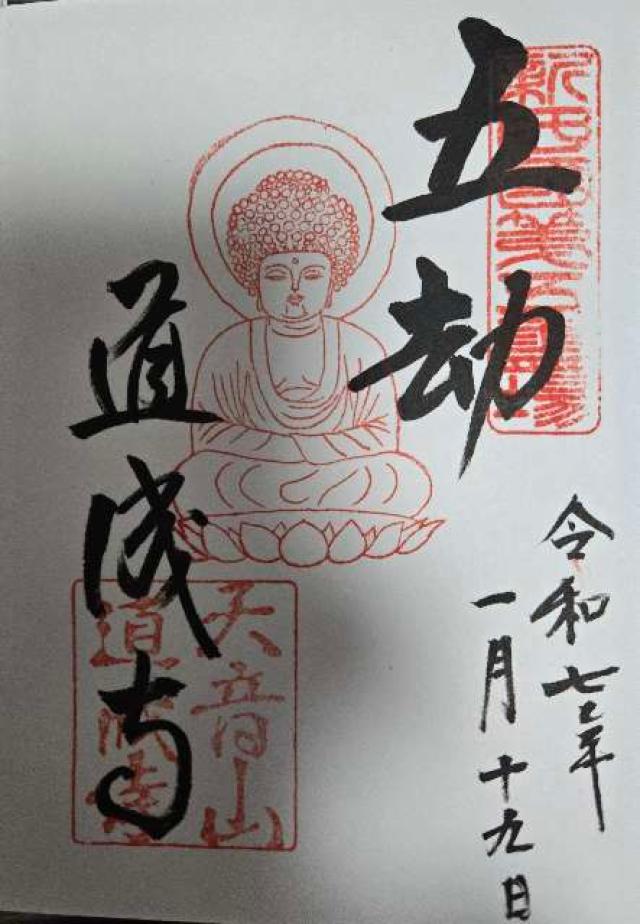 新西国第五
五劫
令和七年
一月十九日
道成寺
天音山
道成寺